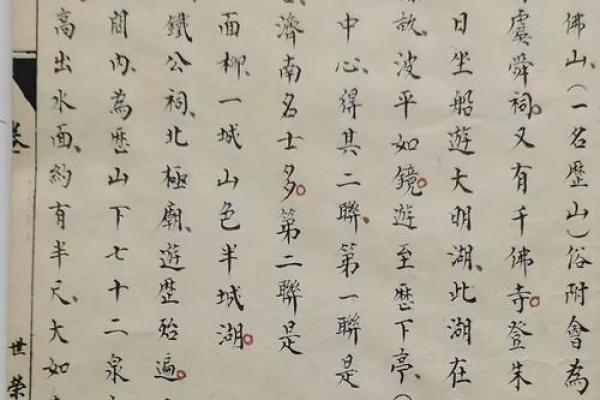 佛山、(一名歷山)俗附會為
虞舜祠。又有千佛寺。登朱
日坐船遊大明湖、此湖在
畝、波平如鏡。遊至歷下亭、(
中心、得其二聯、第一聯是
濟南名士多。第二聯是
面柳、一城山色半城湖。
鐵公祠、北極廟、遊歷殆遍。
内、為歷山下七十二泉
高出水面、約有半尺、大如
卷
世榮